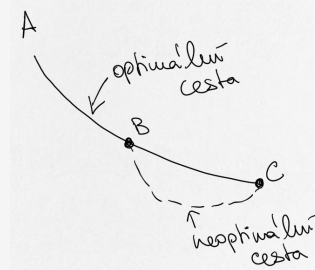 A
optimální
cesta
B
C
neoptimální
cesta